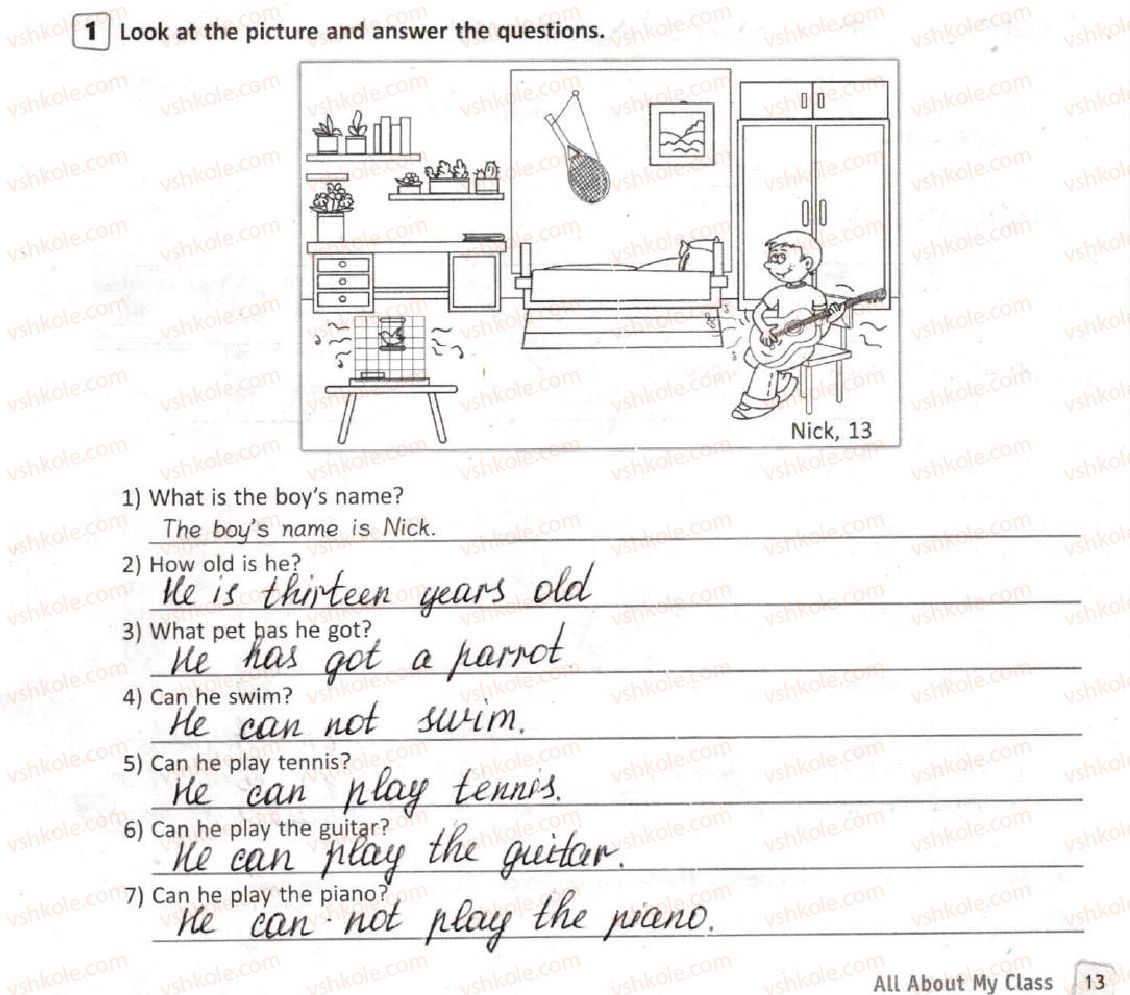 1 Look at the picture and answer the questions.
Nick, 13
1) What is the boy's name?
The boy's name is Nick.
2) How old is he?
He is thirteen years old
3) What pet has he got?
He has got a parrot.
4) Can he swim?
He can not swim.
5) Can he play tennis?
He can play tennis.
6) Can he play the guitar?
He can play the guitar.
7) Can he play the piano?
He can not play the piano.
All About My Class 13
vshkole.com